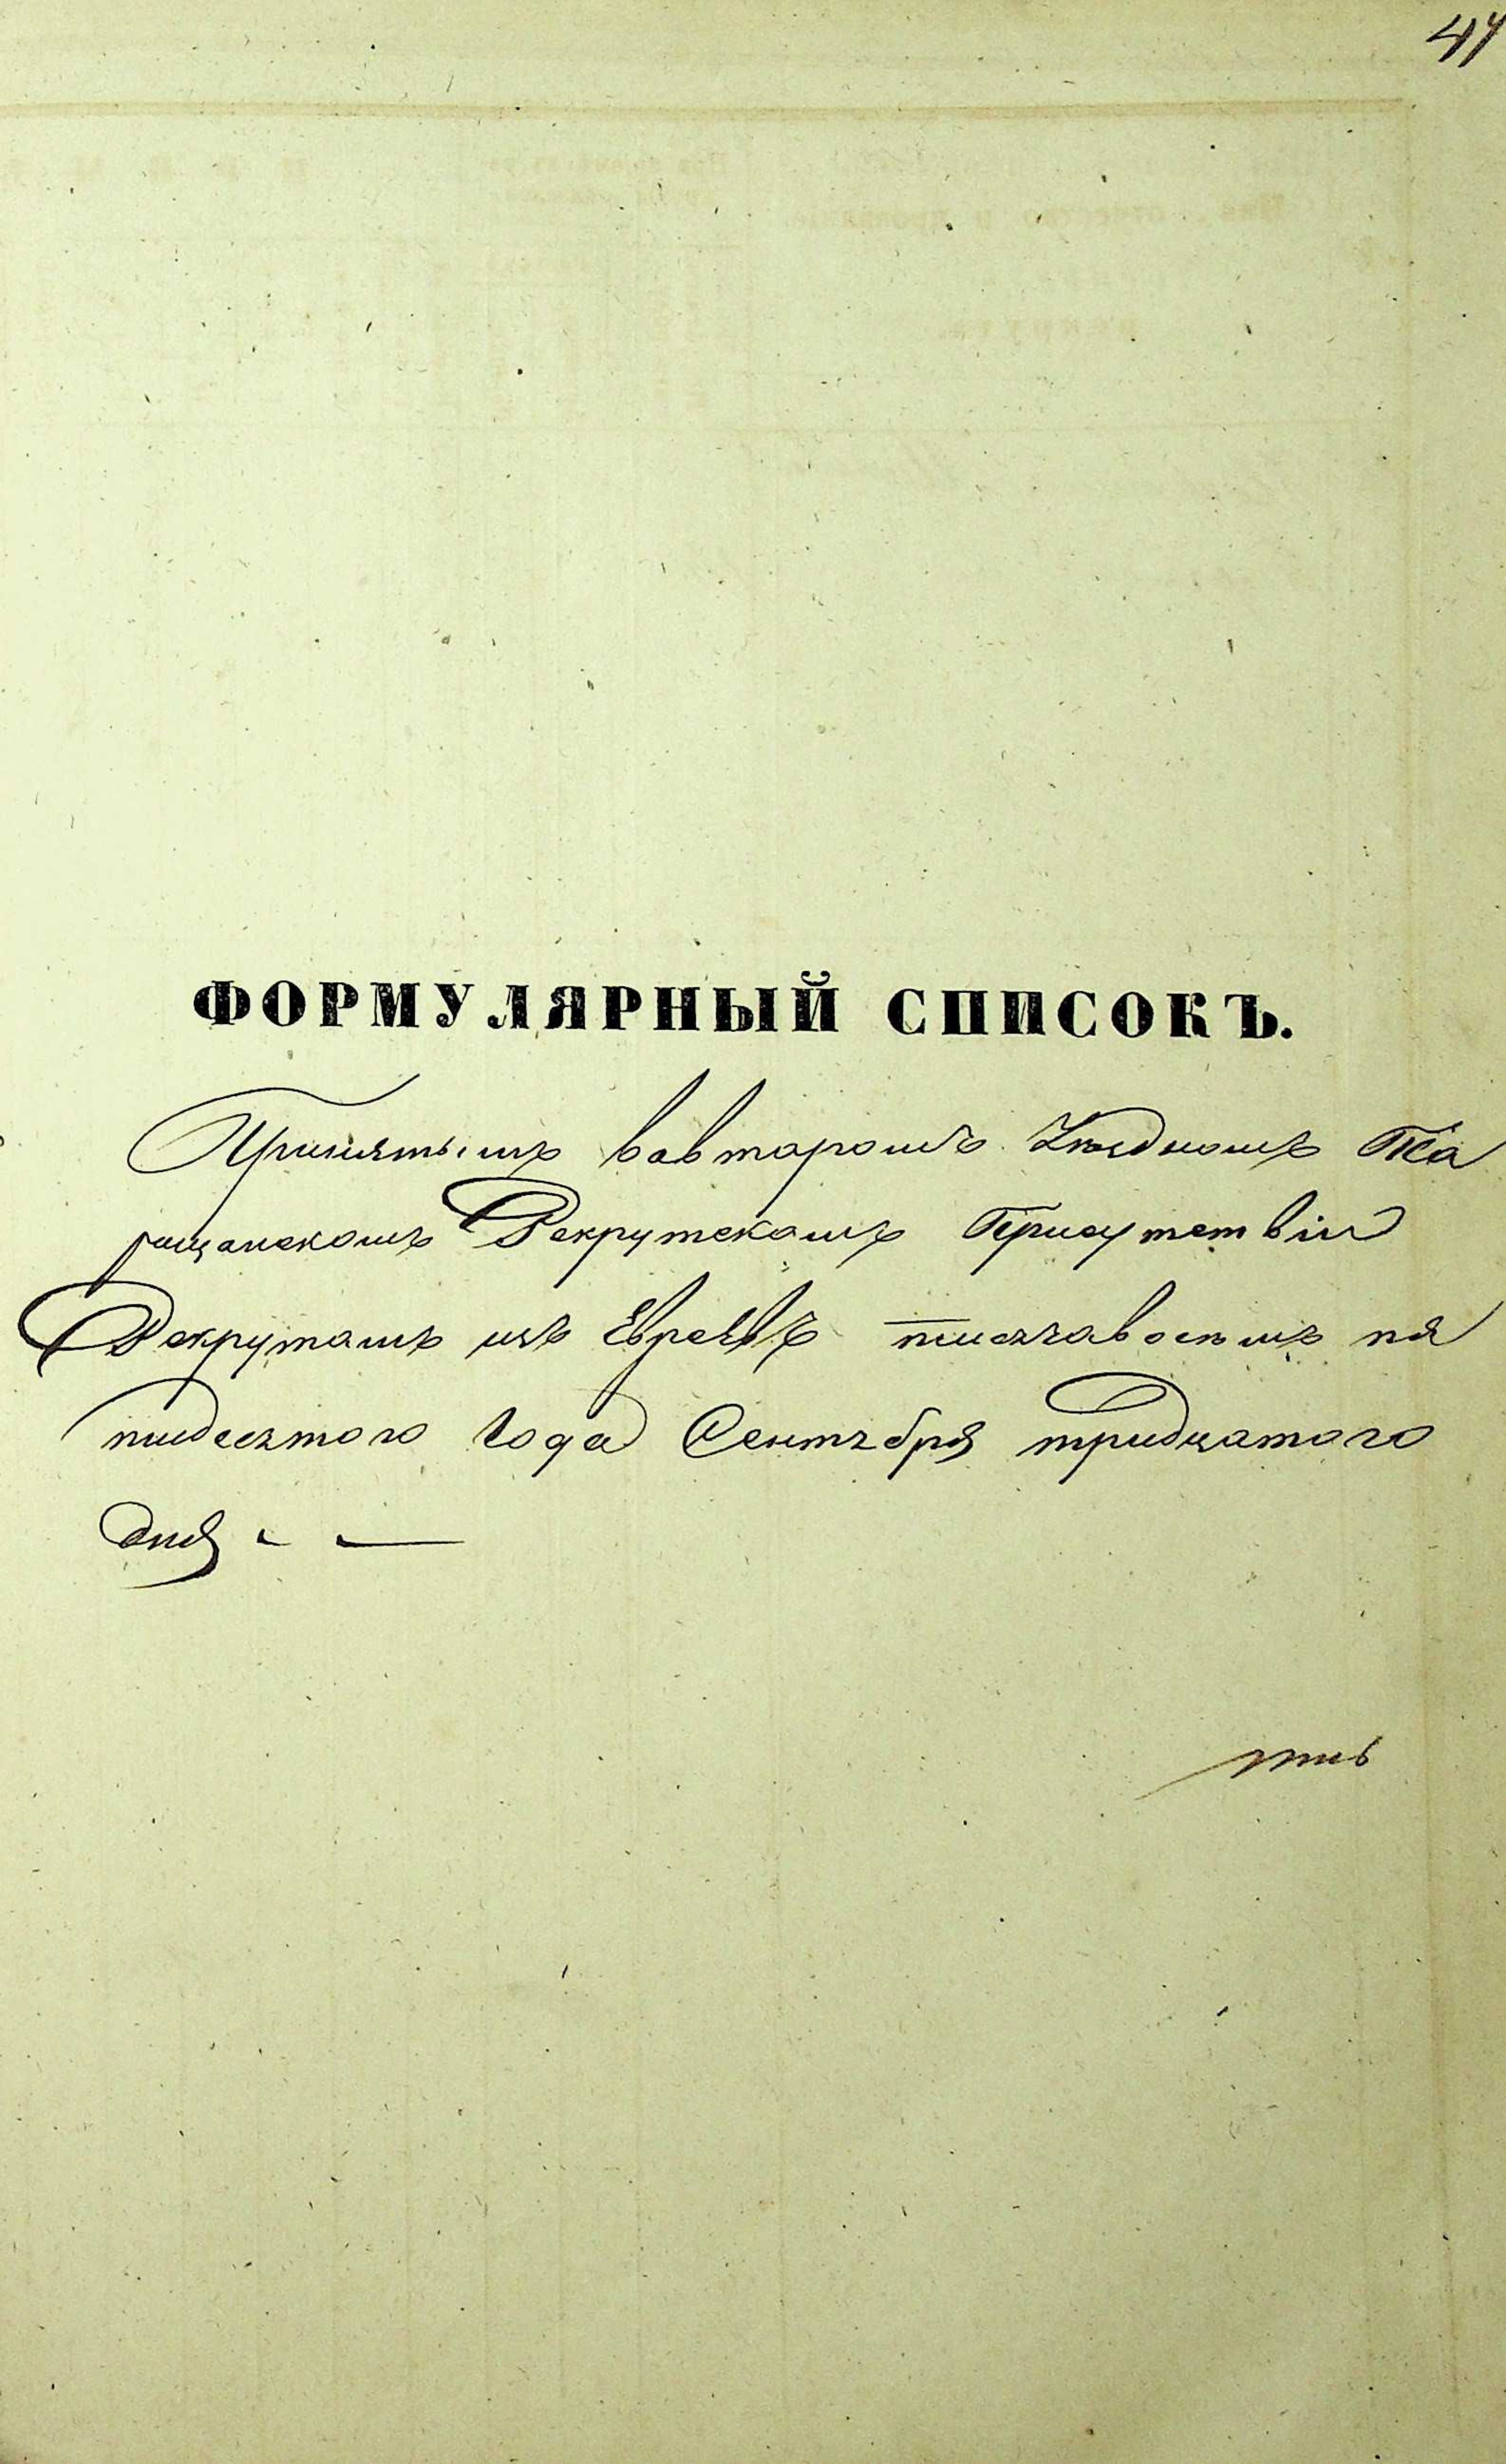 44
ФОРМУЛЯРНЫЙ СПИСОКЪ.
Принятымъ вовторомъ Уездномъ Та
ращанскомъ Рекрутскомъ Присутствіи
Рекрутамъ изъ Евреевъ тысячавосемъ пя
тидесятого года Сентября тридцатого
дня